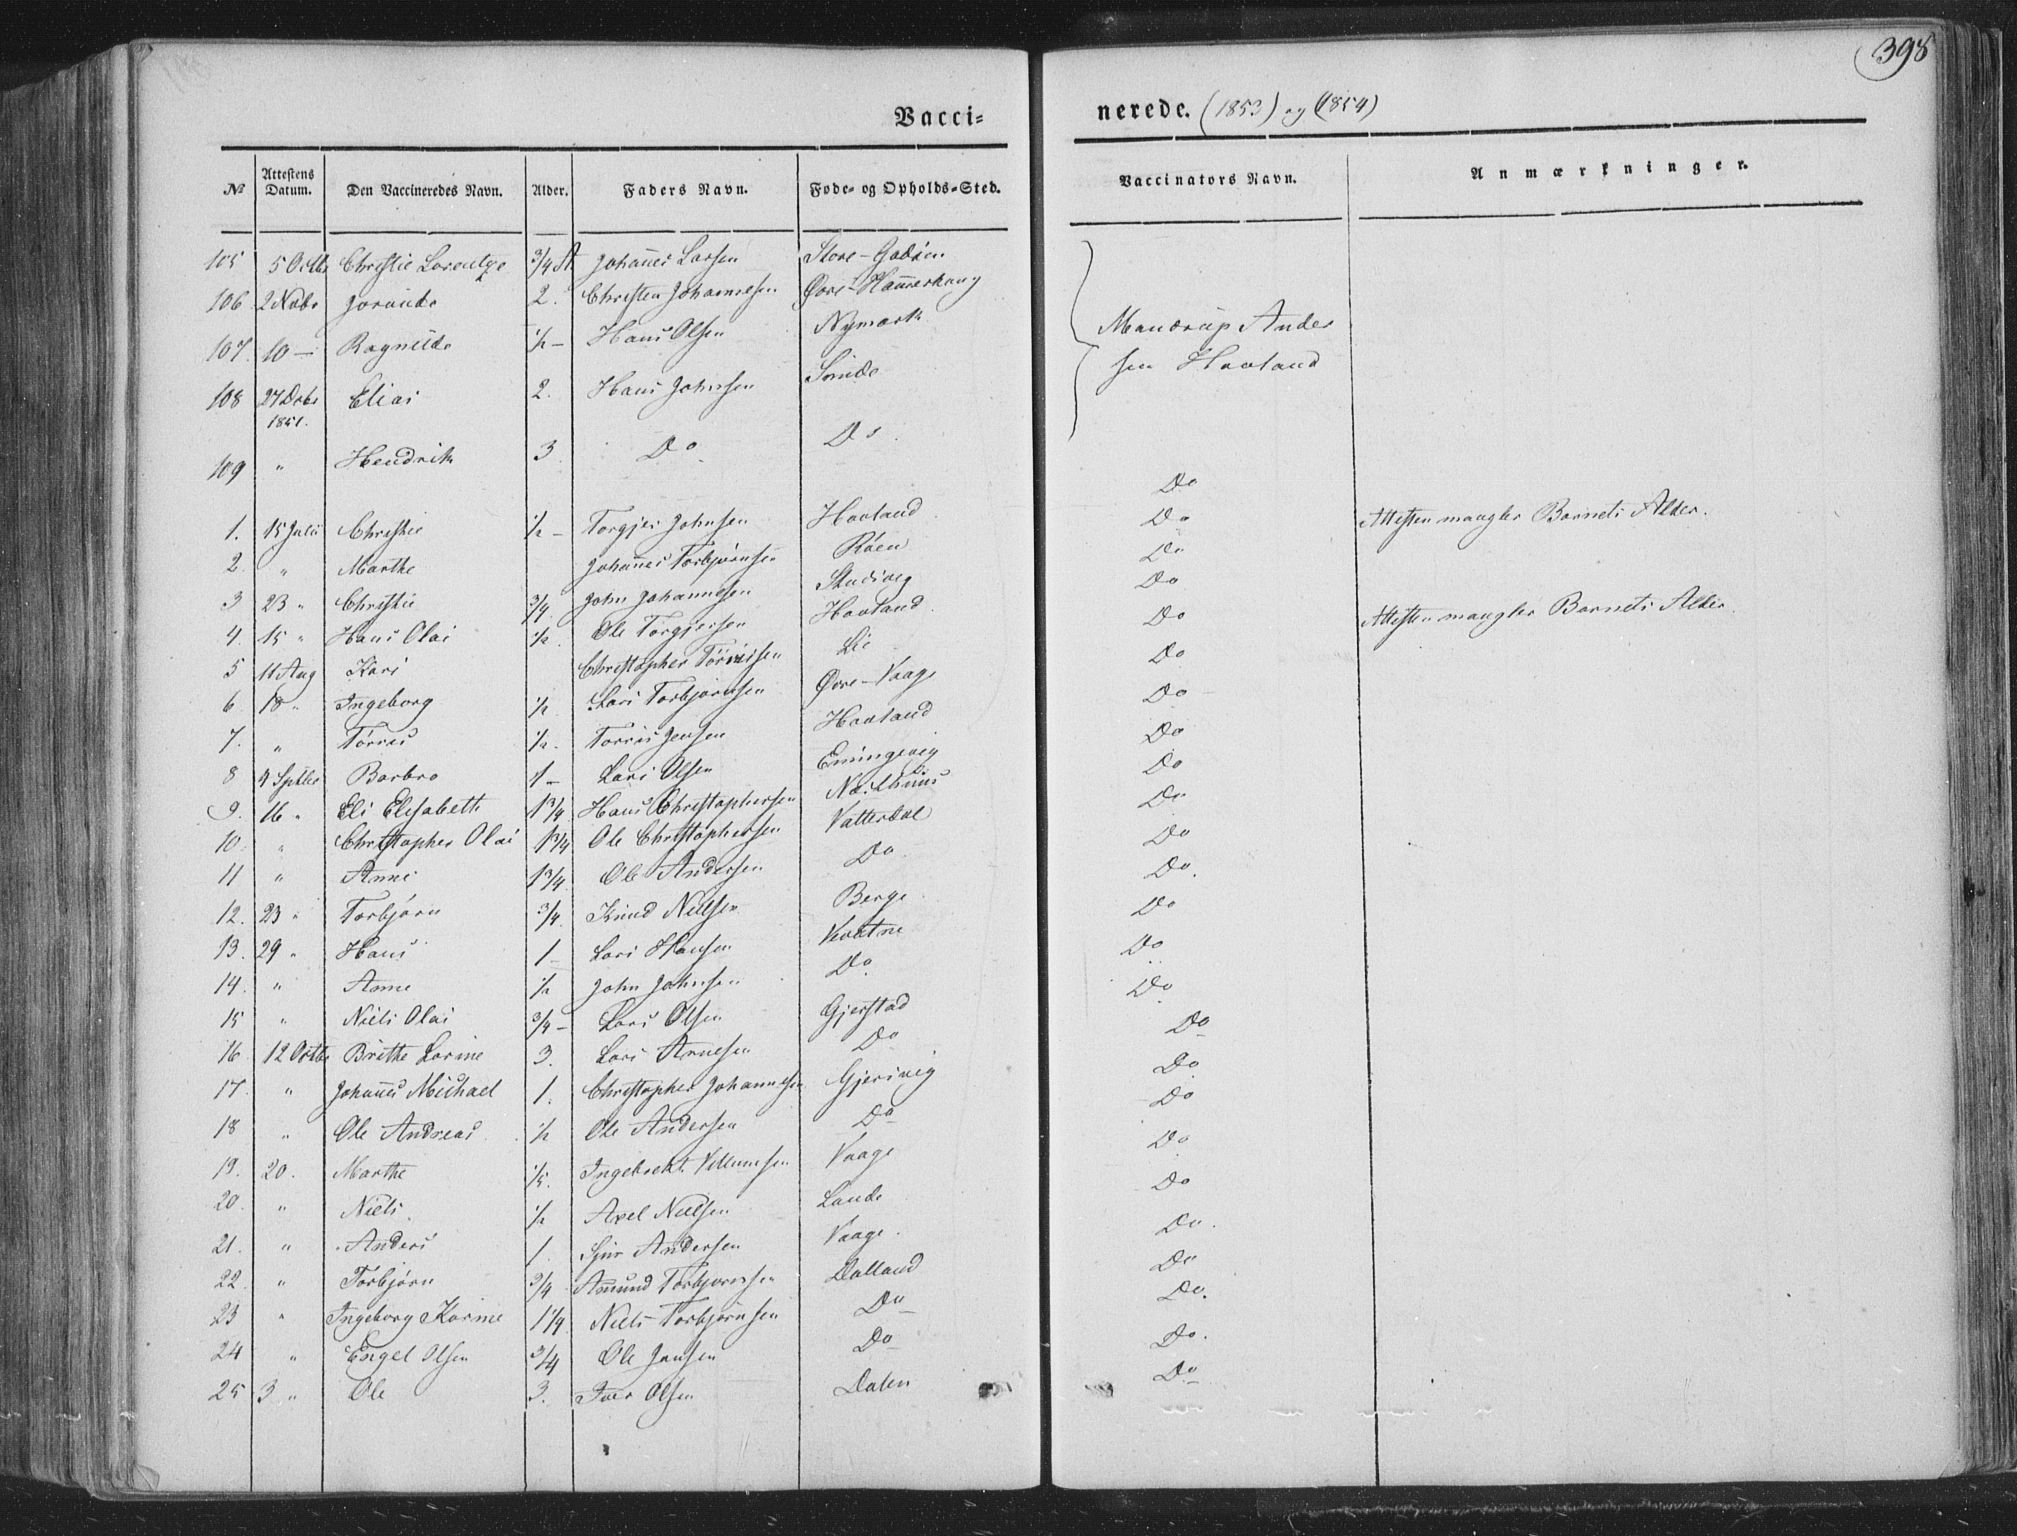 398
Vacci-
nerede. (1853) og (1854)
№ Attestens Datum. Den Vaccineredes Navn. Alder. Faders Navn. Føde- og Opholds-Sted.
Vaccinators Navn. Anmærkninger.
105 5 Octbr Christie Lorentze 3/4 A Johannes Larsen Store-Godøen
106 2 Novbr Jorande 2. Christen Johannesen Øvre-Haukeshaug
107. 10 — Ragnilde 1/2 — Hans Olsen Nymark
108 27 Decbr Elias 2. Hans Johnsen Sminde
1851.
109 " Hendrik 3 Do Do.
Mandrup Ander
sen Havland
Do
1. 15 Julii Christie 1/2 — Torgjer Johnsen Havland. Do
2. " Marthe Johannes Torbjørnsen Røen Do Attesten mangler Barnets Alder.
3 23 " Christie 3/4. John Johannesen Studivig Do
4. 15 " Hans Olai 1/2. Ole Torgjersen Havland. Do
5 11 Aug Kari Christopher Törrissen Lie Do Attesten mangler Barnets Alder.
6. 18 " Ingeborg 1/2 Lars Torbjørnsen Øvre-Vaage Do
7. " Törres 1/2. Torres Jensen Havland Do
8 4 Septbr Barbro 1 — Lars Olsen Eningevig Do
9. 16 " Eli Elisabeth 1 3/4. Hans Christophersen Næsthuus Do
10. " Christopher Olai 1 3/4 Ole Christophersen Vatterdal Do
11 " Anne 1 3/4. Ole Andersen Do Do.
12. 23 " Torbjørn 3/4. Knud Nielsen Berge Do
13. 29 " Hans 1 — Lars Hansen Kvatne Do
14. " Anne 1/2 John Johnsen Do Do
15 " Niels Olai 3/4 — Lars Olsen Gjerstad Do
16. 12 Octbr Brithe Larine 3. Lars Arnesen Do Do
17. " Johannes Michael 1. Christopher Johannesen Gjersvig Do
18 " Ole Andreas 1/2 Ole Andersen Do Do
19. 20. Marthe 1/2. Ingebrekt Villumsen Vaage Do
20. " Niels 1/2 Axel Nielsen Lande Do.
21. " Anders 1. Sjur Andersen Vaage. Do
22. " Torbjørn 3/4 Amund Torbjørnsen Dalland Do.
23 " Ingeborg Karine 1 1/4 Niels Torbjørnsen Do Do.
24 " Engel Olsen 3/4 Ole Jansen Do Do
25 3 " Ole 3. Iver Olsen Dalen